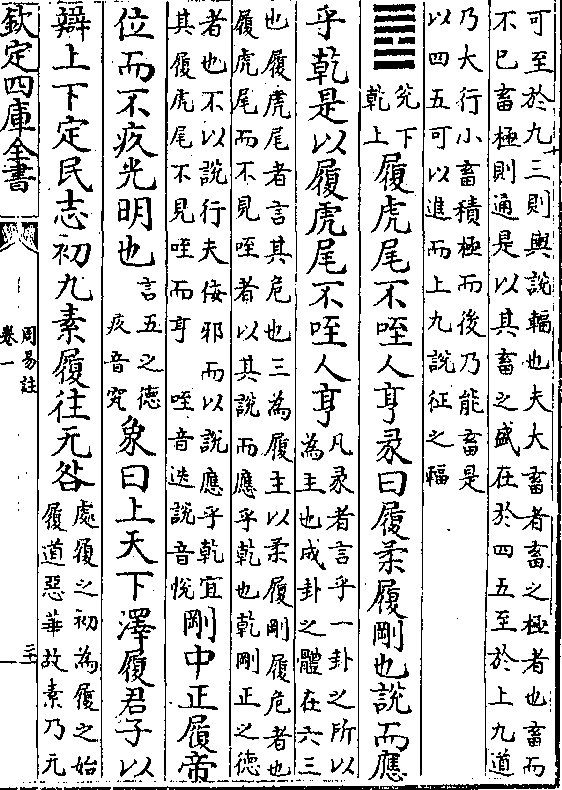 可至於九三則輿說輻也夫大畜者畜之極者也畜而
不已畜極則通是以其畜之盛在於四五至於上九道
乃大行小畜積極而後乃能畜是
以四五可以進而上九說征之輻
䷉
兌下
乾上
履虎尾不咥人亨彖曰履柔履剛也說而應
乎乾是以履虎尾不咥人亨
凡彖者言乎一卦之所以
為主也成卦之體在六三
也履虎尾者言其危也三為履主以柔履剛履危者也
履虎尾而不見咥者以其說而應乎乾也乾剛正之德
者也不以說行夫佞邪而以說應乎乾宜
其履虎尾不見咥而亨 咥音迭說音悅
剛中正履帝
位而不疚光明也
言五之德
疚音究
象曰上天下澤履君子以
辯上下定民志初九素履往无咎
處履之初為履之始
履道惡華故素乃无
欽定四庫全書
周易註
卷一